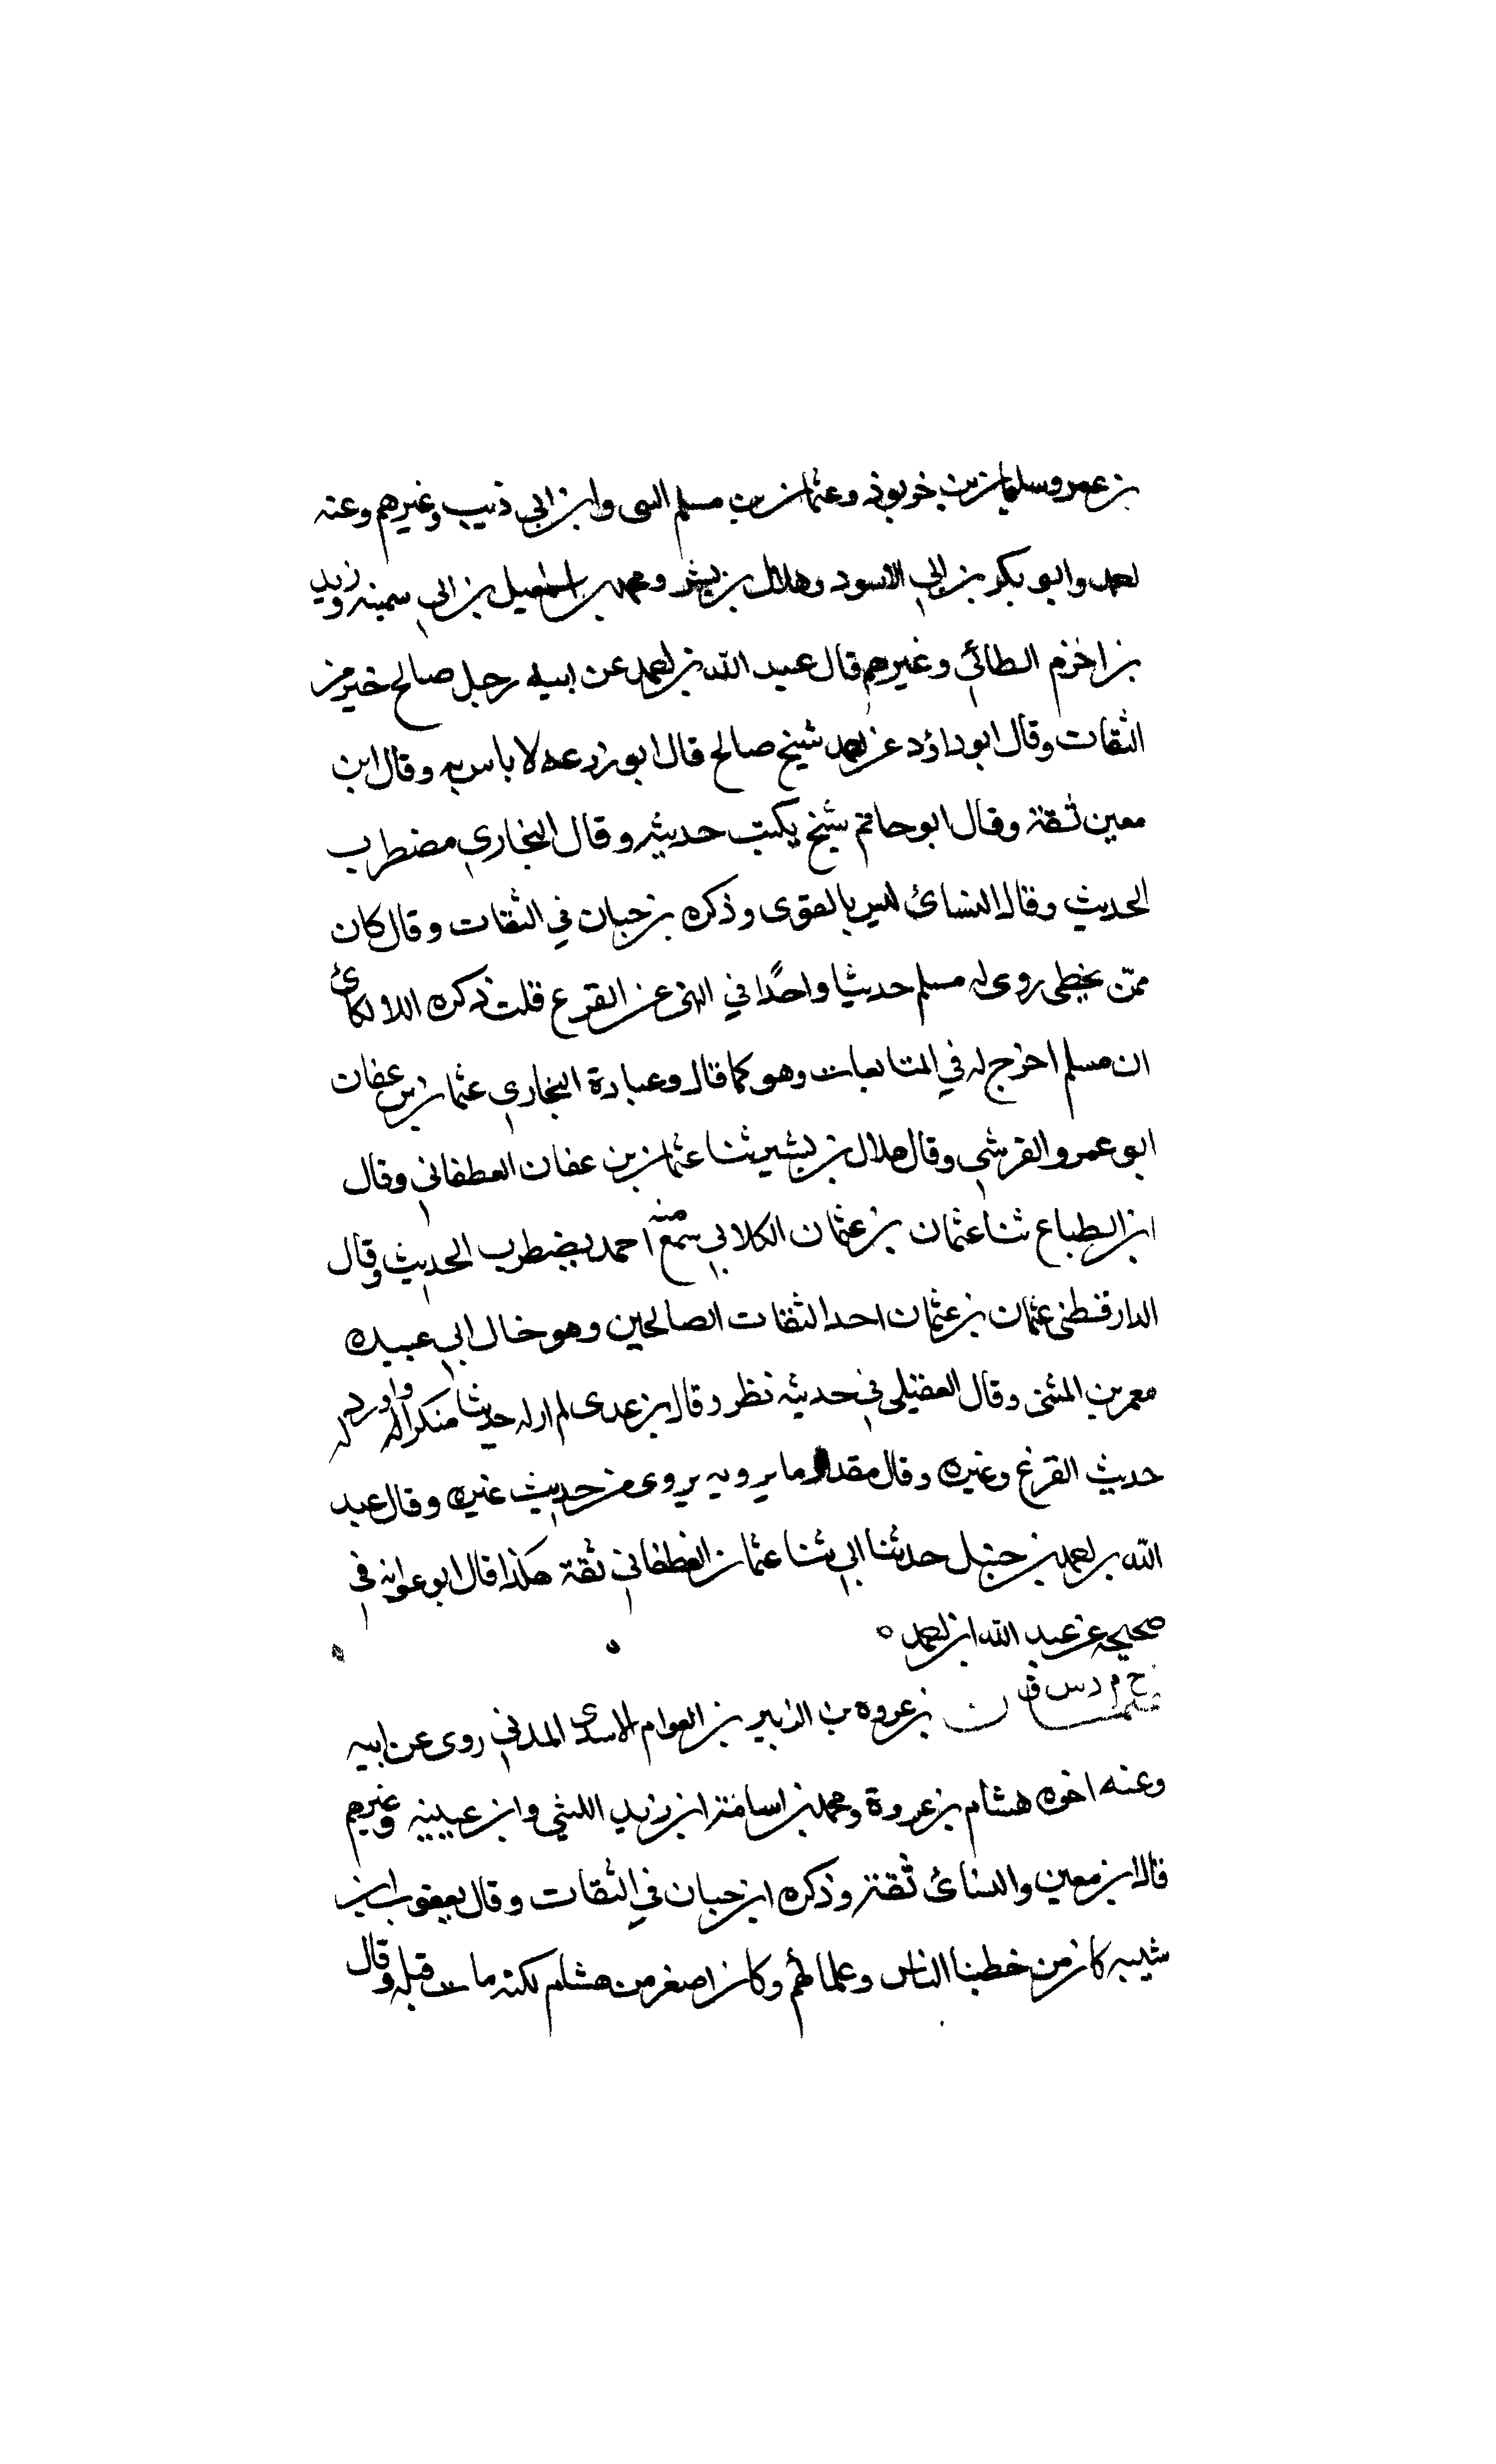 بن عمرو وسليمان بن خربوذ وعثمان بن مسلم البتى وابن ابي ذئيب وغيرهم وعنه
احمد وابو بكر بن ابي الاسود وهلال بن بشر ومحمد بن اسمعيل بن ابي سمينه وزيد
بن اخزم الطائي وغيرهم قال عبد الله بن احمد عن ابيه رجل صالح خير من
الثقات وقال ابو داؤد عن احمد شيخ صالح قال ابو زرعه لا باس به وقال ابن
معين ثقة وقال ابو حاتم شيخ يكتب حديثه وقال البخاري مضطرب
الحديث وقال النسائ ليس بالقوى وذكره بن حبان في الثقات وقال كان
ممّن يخطى روى له مسلم حديثا واحدًا في النهى عن القزع قلت ذكره اللالكائ
ان مسلم اخرج له في المتابعات وهو كما قال وعبارة البخاري عثمان بن عفان
ابو عمرو القرشي وقال هلال بن بشير ثنا عثمان بن عفان الغطفاني وقال
ابن الطباع ثنا عثمان بن عثمان الكلابي سمع منه احمد يضطرب الحديث وقال
الدارقطنى عثمان بن عثمان احد الثقات الصالحين وهو خال ابي عبيده
معمر بن المثنى وقال العقيلى في حديثه نظر وقال بن عدى لم ار له حديثا منكرا واورد له
حديث القزع وغيره وقال مقدار ما يرويه يروى من حديث غيره وقال عبد
الله بن احمد بن حنبل حدثنا ابي ثنا عثمان الغطفاني ثقة هكذا قال ابو عوانه في
صحيحه عن عبد الله ابن احمد ه
خ م د س ق
عثمان بن عروه بن الزبير بن العوام الاسدى المدني روى عن ابيه
وعنه اخوه هشام بن عروة ومحمد بن اسامة ابن زيد الليثي وابن عيينه وغيرهم
قال ابن معين والنسائ ثقة وذكره ابن حبان في الثقات وقال يعقوب ابن
شيبه كان من خطبا الناس وعلمائهم وكان اصغر من هشام لكنه مات قبله وقال